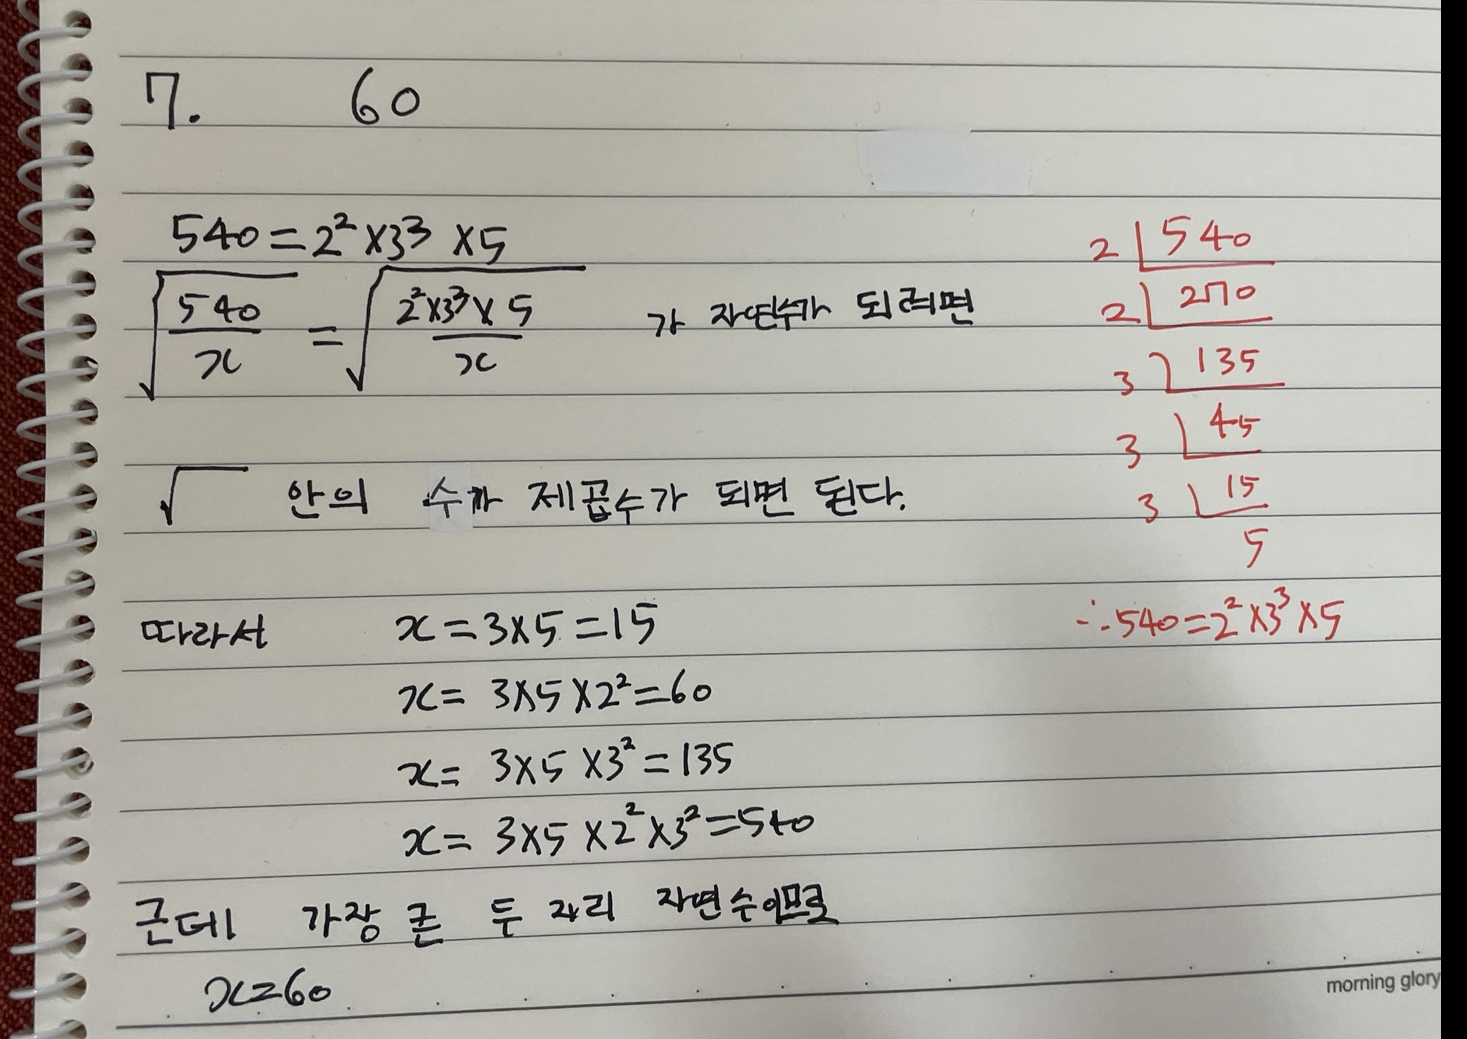 7. 60
540=2²×3³×5
√(540/x) = √(2²×3³×5/x) 가 자연수가 되려면
√ 안의 수가 제곱수가 되면 된다.
따라서 x=3×5=15
x=3×5×2²=60
x=3×5×3²=135
x=3×5×2²×3²=540
근데 가장 큰 두 자리 자연수이므로
x=60
2 540
2 270
3 135
3 45
3 15
5
∴540=2²×3³×5
morning glory